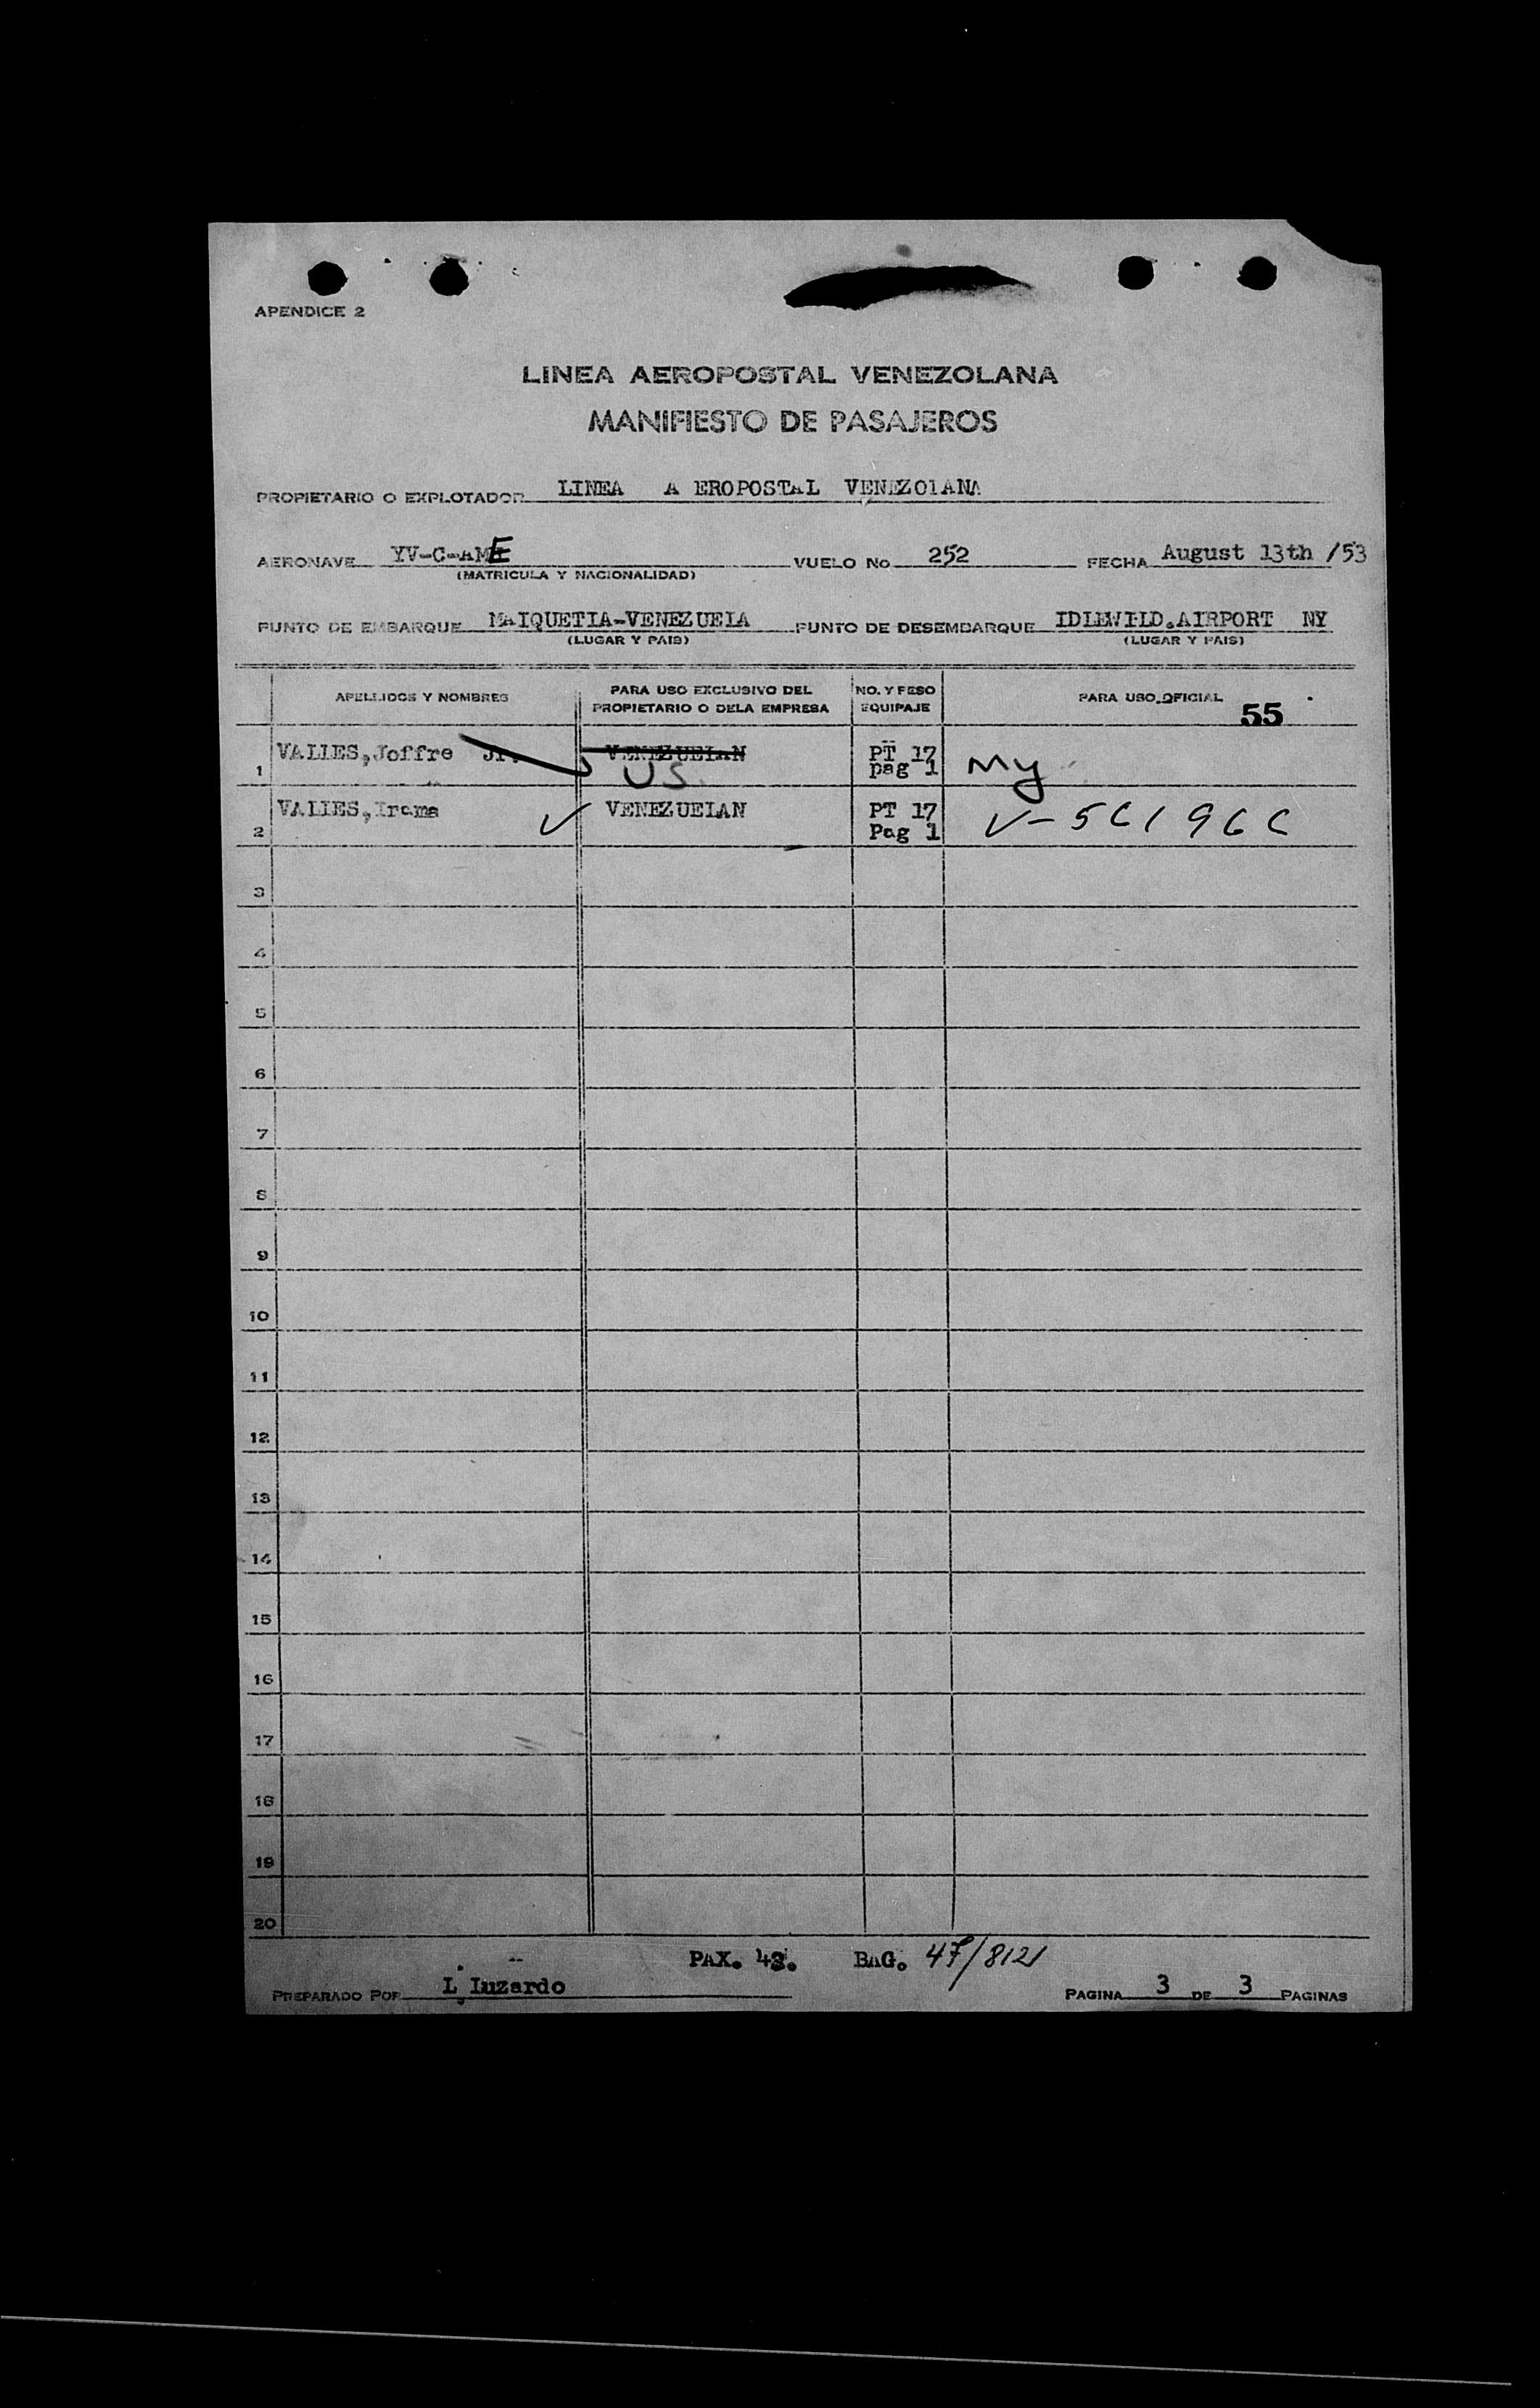 APENDICE 2
LINEA AEROPOSTAL VENEZOLANA
MANIFIESTO DE PASAJEROS
PROPIETARIO O EXPLOTADOR LINEA A EROPOSTAL VENEZOlANA
AERONAVE YV-C-AME VUELO No 252 FECHA August 13th /53
(MATRICULA Y NACIONALIDAD)
PUNTO DE EMBARQUE MAIQUETIA-VENEZUELA PUNTO DE DESEMBARQUE IDLEWILD.AIRPORT NY
(LUGAR Y PAIS) (LUGAR Y PAIS)
APELLIDOS Y NOMBRES PARA USO EXCLUSIVO DEL PROPIETARIO O DELA EMPRESA NO. Y PESO EQUIPAJE PARA USO OFICIAL 55
1 VALLES,Joffre Jr. VENEZUELAN US PT 17 pag 1 My
2 VALLES,Irama VENEZUELAN PT 17 Pag 1 V-561966
3
4
5
6
7
8
9
10
11
12
13
14
15
16
17
18
19
20
PAX. 43. BAG. 47/8121
PREPARADO POR L. Luzardo PAGINA 3 DE 3 PAGINAS